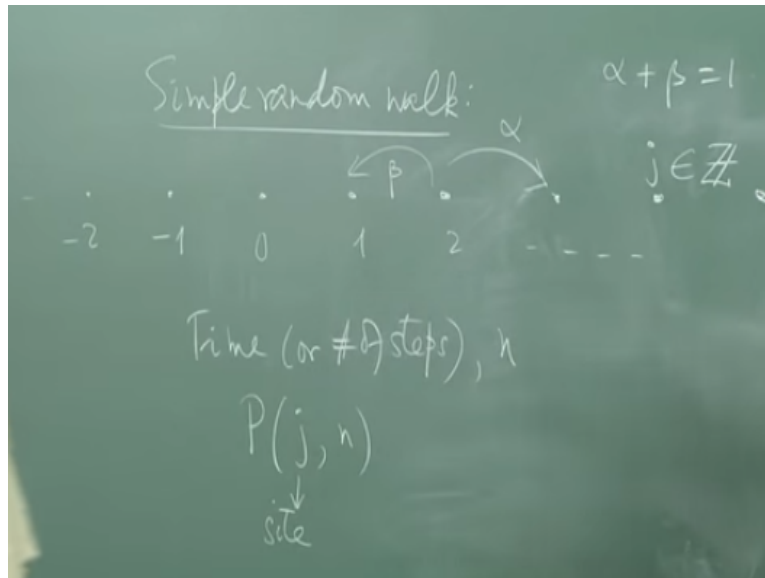 Simple random walk:
α + β = 1
α
β
j ∈ ℤ
-2 -1 0 1 2 - - - -
Time (or # of steps), n
P(j, n)
↓
site